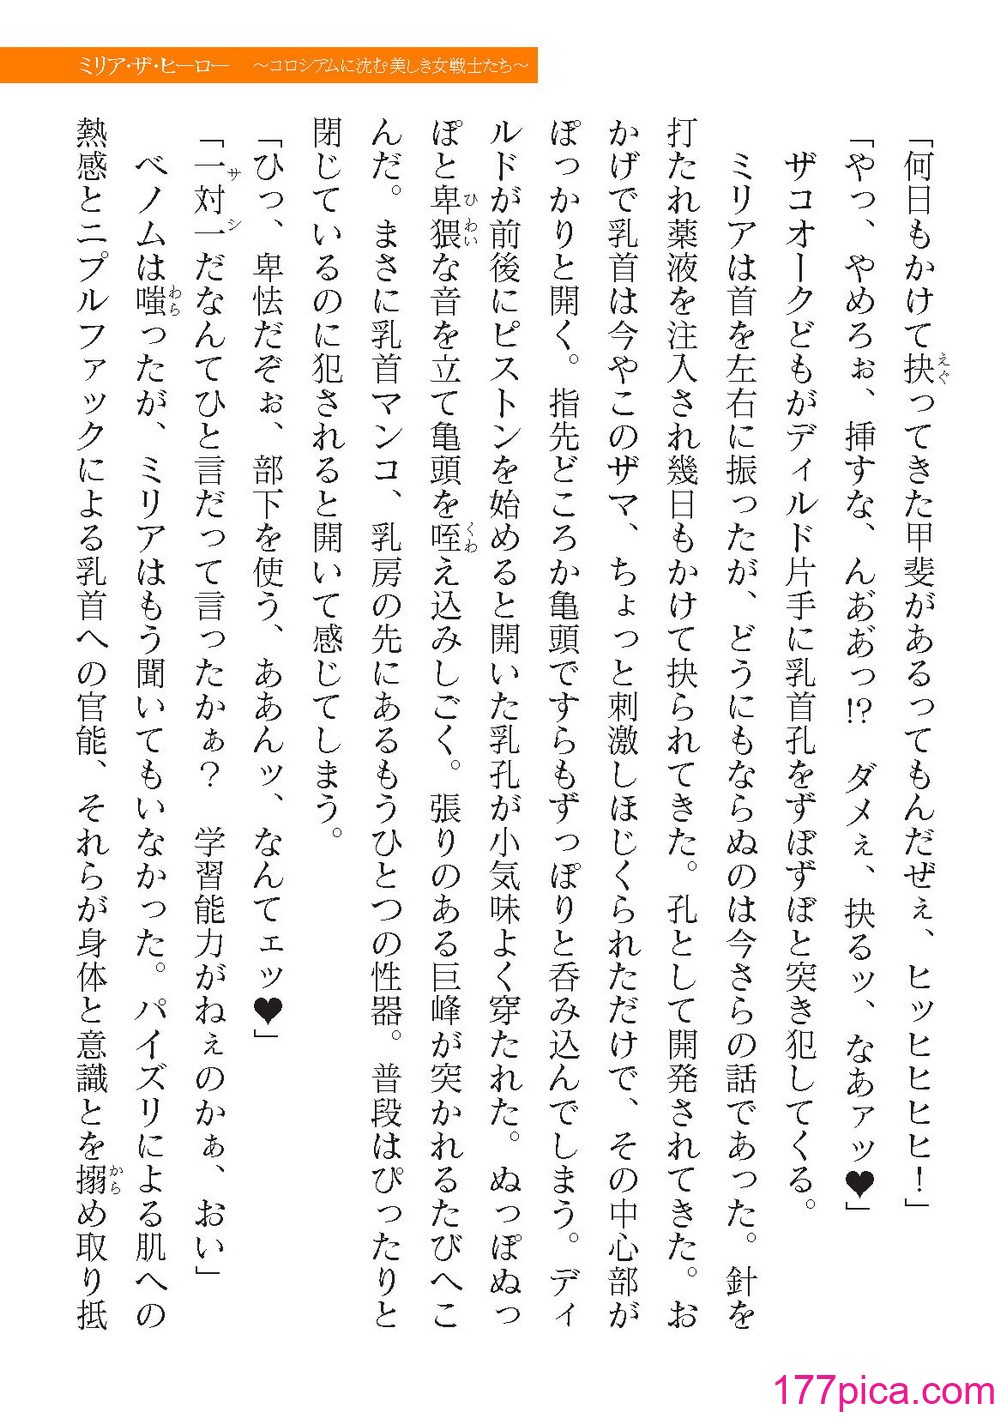 ミリア・ザ・ヒーロー　～コロシアムに沈む美しき女戦士たち～
「何日もかけて抉ってきた甲斐があるってもんだぜぇ、ヒッヒヒヒヒ！」
えぐ
「やっ、やめろぉ、挿すな、んあ゙あ゙っ!?　ダメぇ、抉るッ、なあァッ♥」
ザコオークどもがディルド片手に乳首孔をずぼずぼと突き犯してくる。
ミリアは首を左右に振ったが、どうにもならぬのは今さらの話であった。針を
打たれ薬液を注入され幾日もかけて抉られてきた。孔として開発されてきた。お
かげで乳首は今やこのザマ、ちょっと刺激しほじくられただけで、その中心部が
ぽっかりと開く。指先どころか亀頭ですらもずっぽりと呑み込んでしまう。ディ
ルドが前後にピストンを始めると開いた乳孔が小気味よく穿たれた。ぬっぽぬっ
ぽと卑猥な音を立て亀頭を咥え込みしごく。張りのある巨峰が突かれるたびへこ
ひわい
くわ
んだ。まさに乳首マンコ、乳房の先にあるもうひとつの性器。普段はぴったりと
閉じているのに犯されると開いて感じてしまう。
「ひっ、卑怯だぞぉ、部下を使う、ああんッ、なんてェッ♥」
「一対一だなんてひと言だって言ったかぁ？　学習能力がねぇのかぁ、おい」
サシ
ベノムは嗤ったが、ミリアはもう聞いてもいなかった。パイズリによる肌への
わら
熱感とニプルファックによる乳首への官能、それらが身体と意識とを搦め取り抵
から
177pica.com